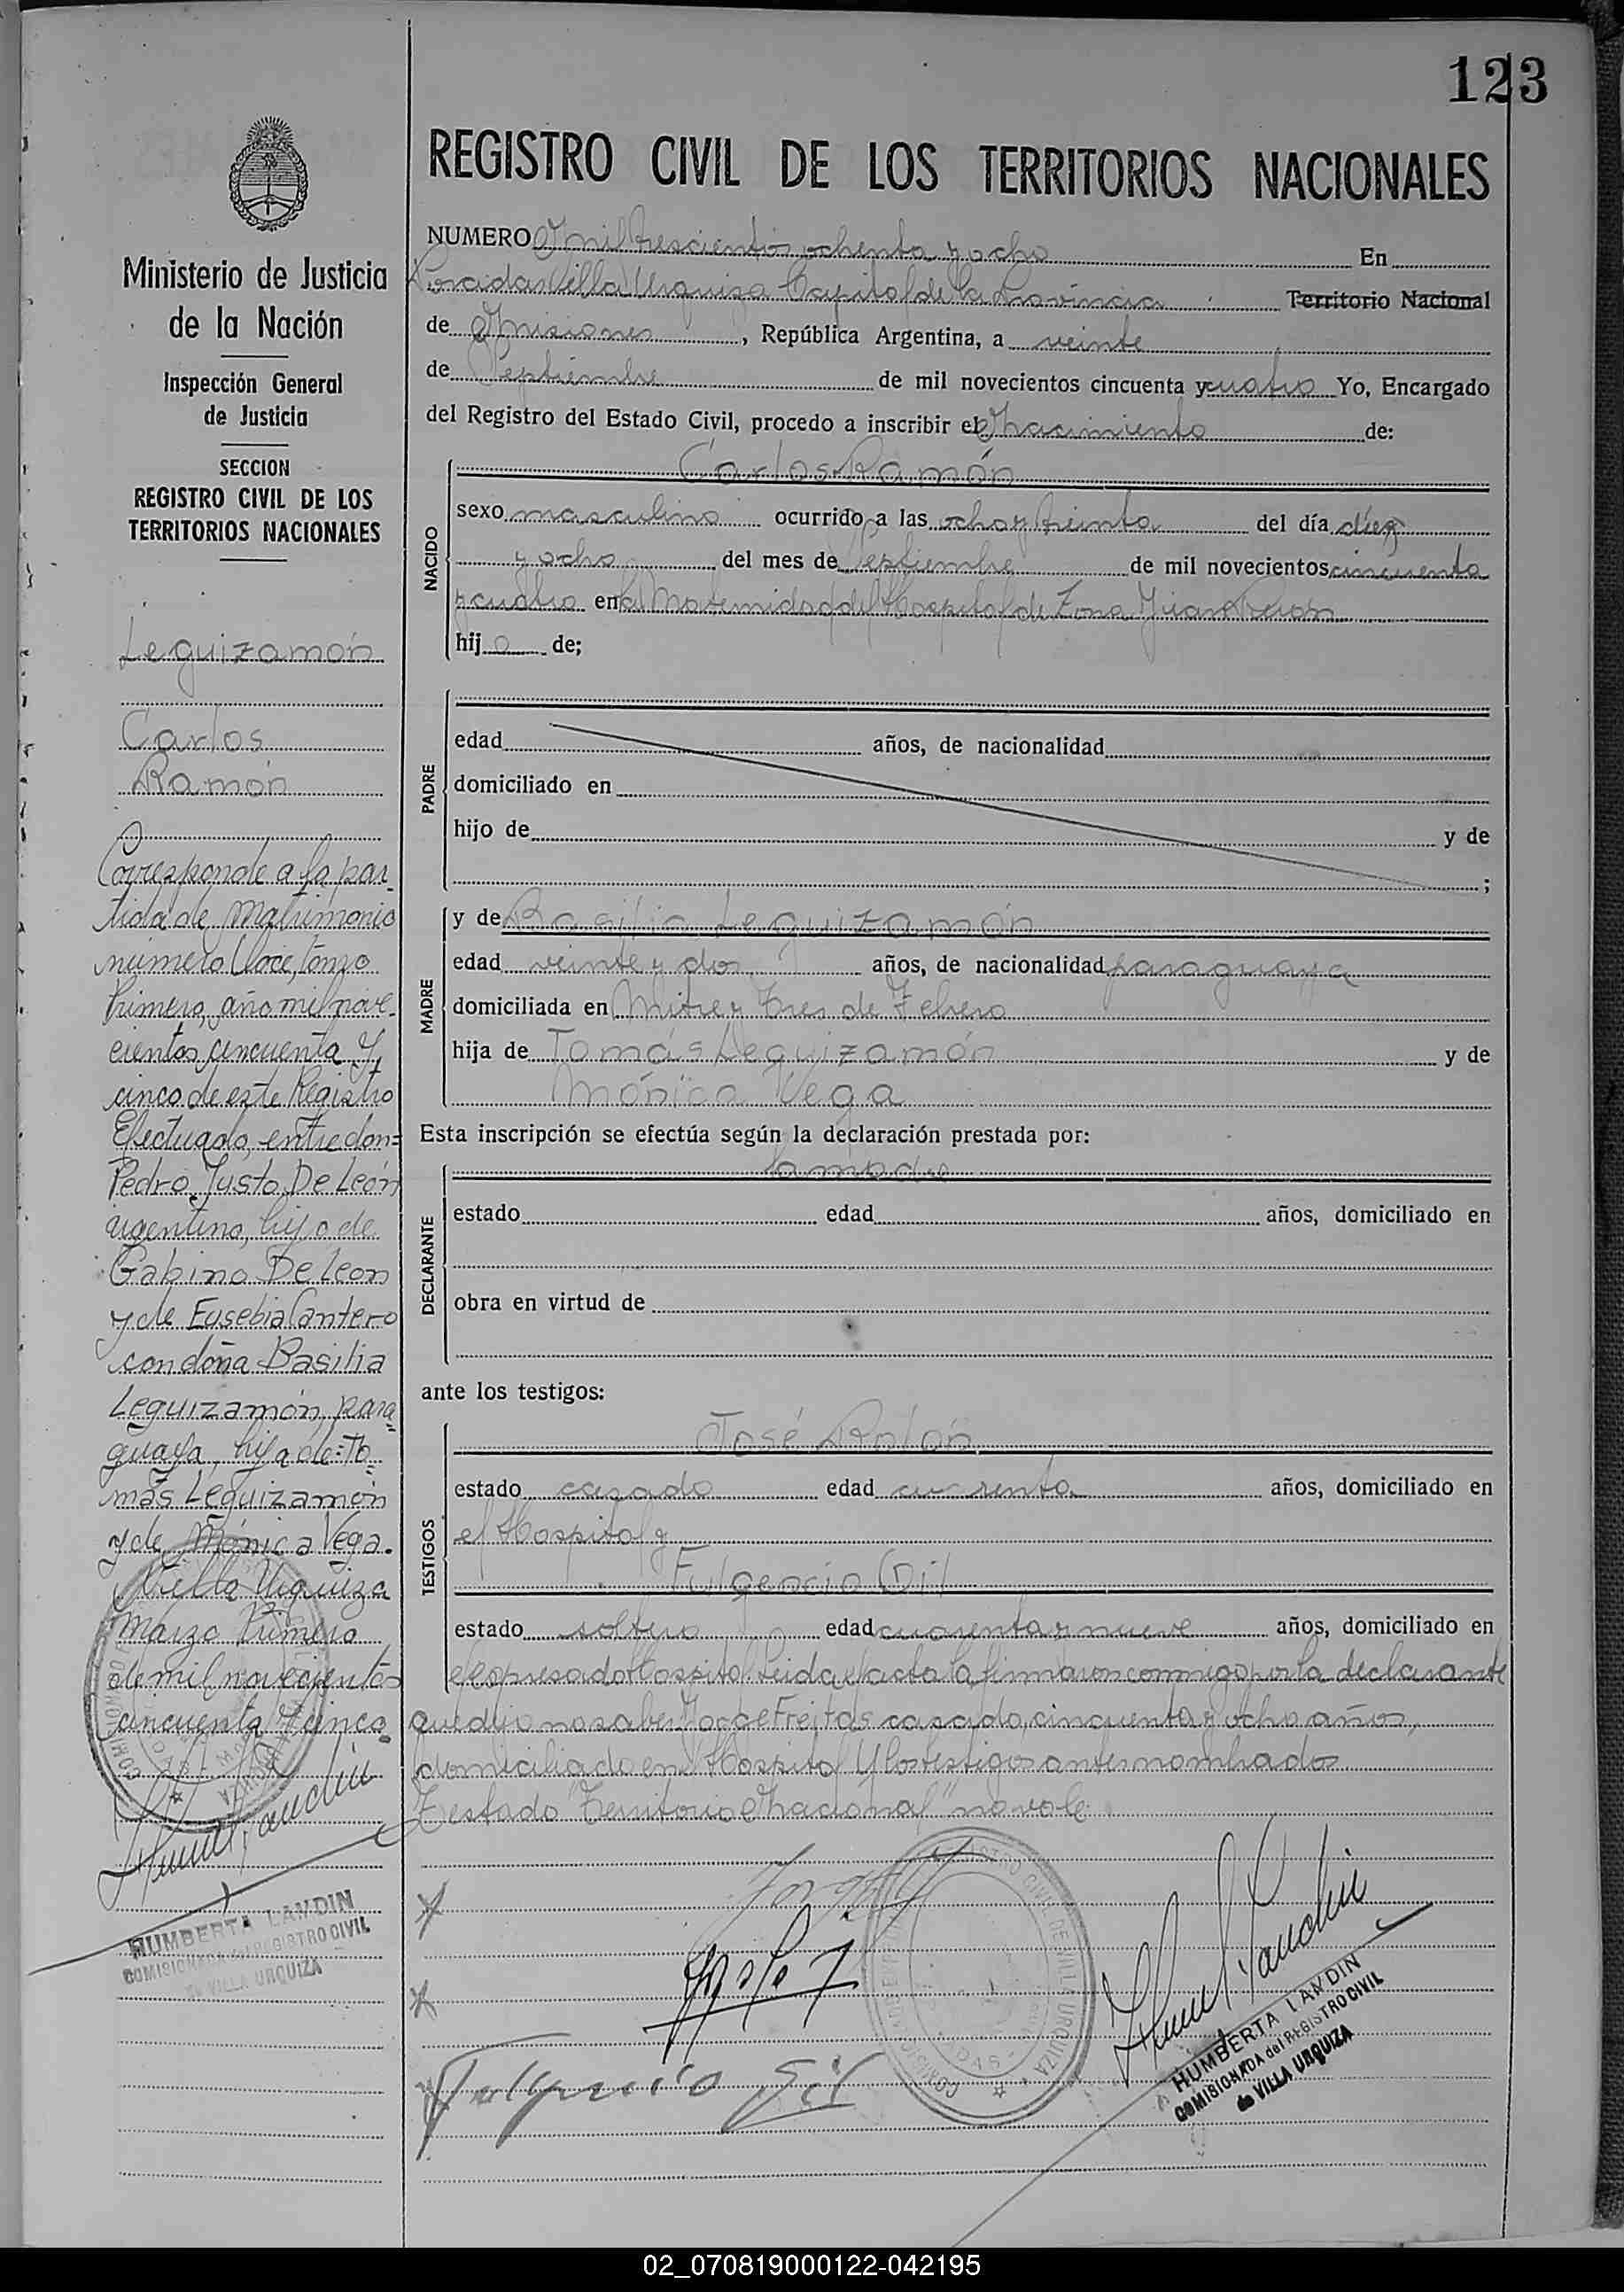 123
REGISTRO CIVIL DE LOS TERRITORIOS NACIONALES
Ministerio de Justicia
de la Nación
Inspección General
de Justicia
SECCION
REGISTRO CIVIL DE LOS
TERRITORIOS NACIONALES
Leguizamón
Carlos
Ramón
Corresponde a la par-
tida de Matrimonio
número Doce, tomo
Primero, año mil nove-
cientos cincuenta y
cinco de este Registro
Efectuado, entre don=
Pedro Justo De León
argentino, hijo de
Gabino De Leon
y de Eusebia Cantero
con doña Basilia
Leguizamón, para=
guaya, hija de: To=
más Leguizamón
y de Mónica Vega.
Villa Urquiza
Marzo Primero
de mil novecientos
cincuenta y cinco.
HUMBERTA LANDIN
COMISIONADA del REGISTRO CIVIL
de VILLA URQUIZA
NUMERO Mil trescientos ochenta y ocho En
Posadas Villa Urquiza Capital de la Provincia Territorio Nacional
de Misiones, República Argentina, a veinte
de Septiembre de mil novecientos cincuenta y cuatro Yo, Encargado
del Registro del Estado Civil, procedo a inscribir el Nacimiento de:
NACIDO
Carlos Ramón
sexo masculino ocurrido a las ocho y treinta del día diez
y ocho del mes de Septiembre de mil novecientos cincuenta
y cuatro en la Maternidad del Hospital de Zona Juan Perón
hijo de;
PADRE
edad años, de nacionalidad
domiciliado en
hijo de y de
;
MADRE
y de Basilia Leguizamón
edad veinte y dos años, de nacionalidad paraguaya
domiciliada en Mitre y Tres de Febrero
hija de Tomás Leguizamón y de
Mónica Vega
Esta inscripción se efectúa según la declaración prestada por:
DECLARANTE
la madre
estado edad años, domiciliado en
obra en virtud de
ante los testigos:
TESTIGOS
José Rolón
estado casado edad cuarenta años, domiciliado en
el Hospital y
Fulgencio Gil
estado soltero edad cuarenta y nueve años, domiciliado en
el expresado Hospital. Leida el acta la firmaron conmigo por la declarante
que dijo no saber Jorge Freitas casado, cincuenta y ocho años,
domiciliado en el Hospital y los testigos antes nombrados
Testado "Territorio Nacional" no vale
Fulgencio Gil
COMISIONADA REGISTRO CIVIL DE VILLA URQUIZA
HUMBERTA LANDIN
COMISIONADA del REGISTRO CIVIL
de VILLA URQUIZA
02_070819000122-042195